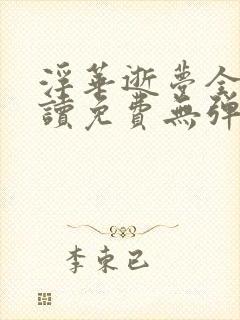 淫華逝夢全
讀免費無彈
李東已